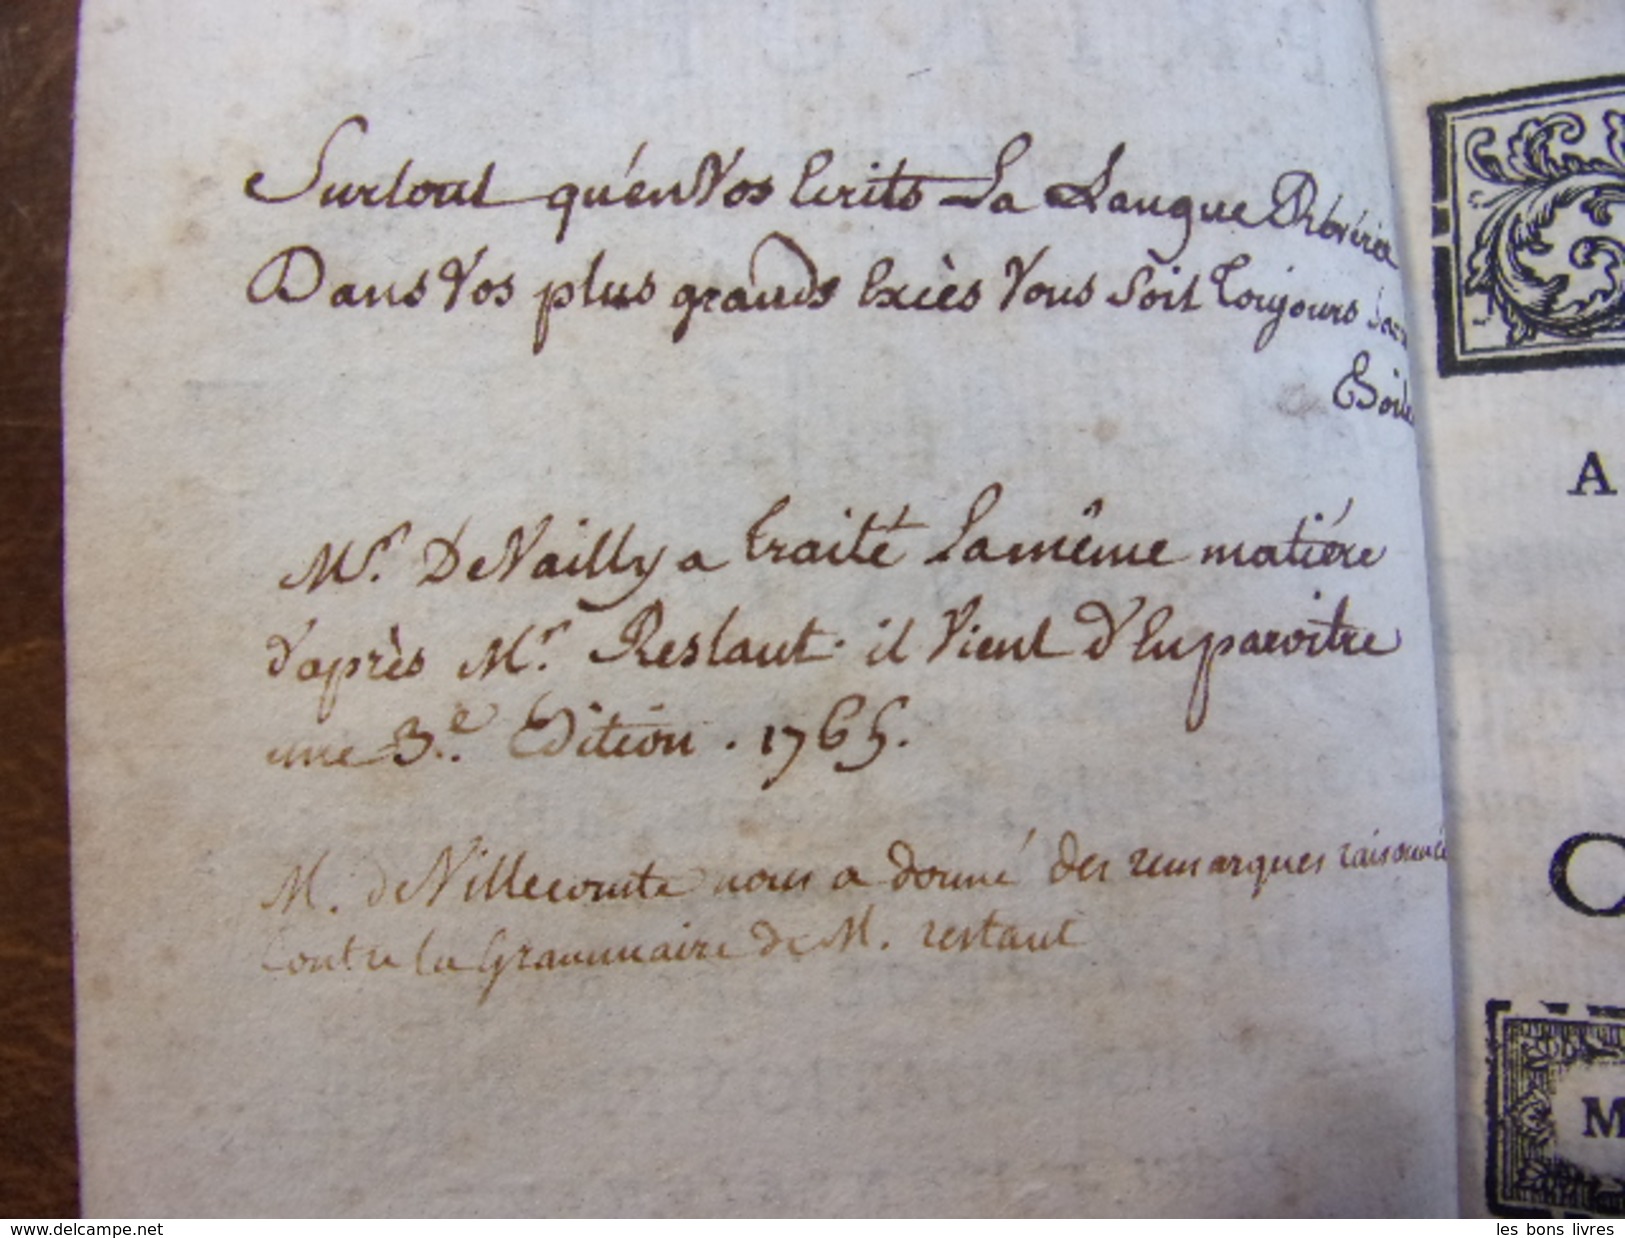 Surtout qu'en Vos Ecrits La Langue Révérée
Dans Vos plus grands Excès Vous Soit Toujours Sac
Boile
Mr. De Vailly a traité La même matiére
d'après Mr. Restaut. il Vient d'En paroitre
une 3.e Edition. 1765.
M. de Villecomte nous a donné des remarques raisonnée
Contre la Grammaire de M. restaut
A
O
M
www.delcampe.net
les bons livres